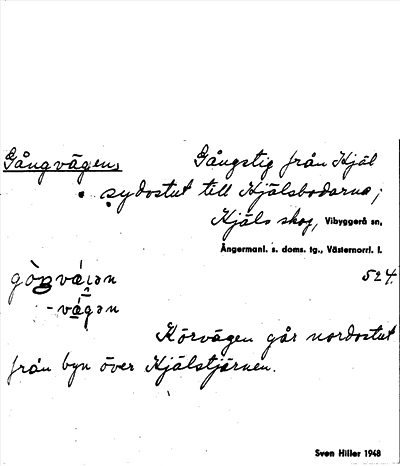 Gångvägen,
Gångstig från Kjäl
sydostut till Kjälsbodarna;
Kjäls skog, Vibyggerå sn,
Ångermanl. s. doms. tg., Västernorrl. l.
524.
-vágən
Körvägen går nordostut
från byn över Kjälstjärnen.
Sven Hiller 1948